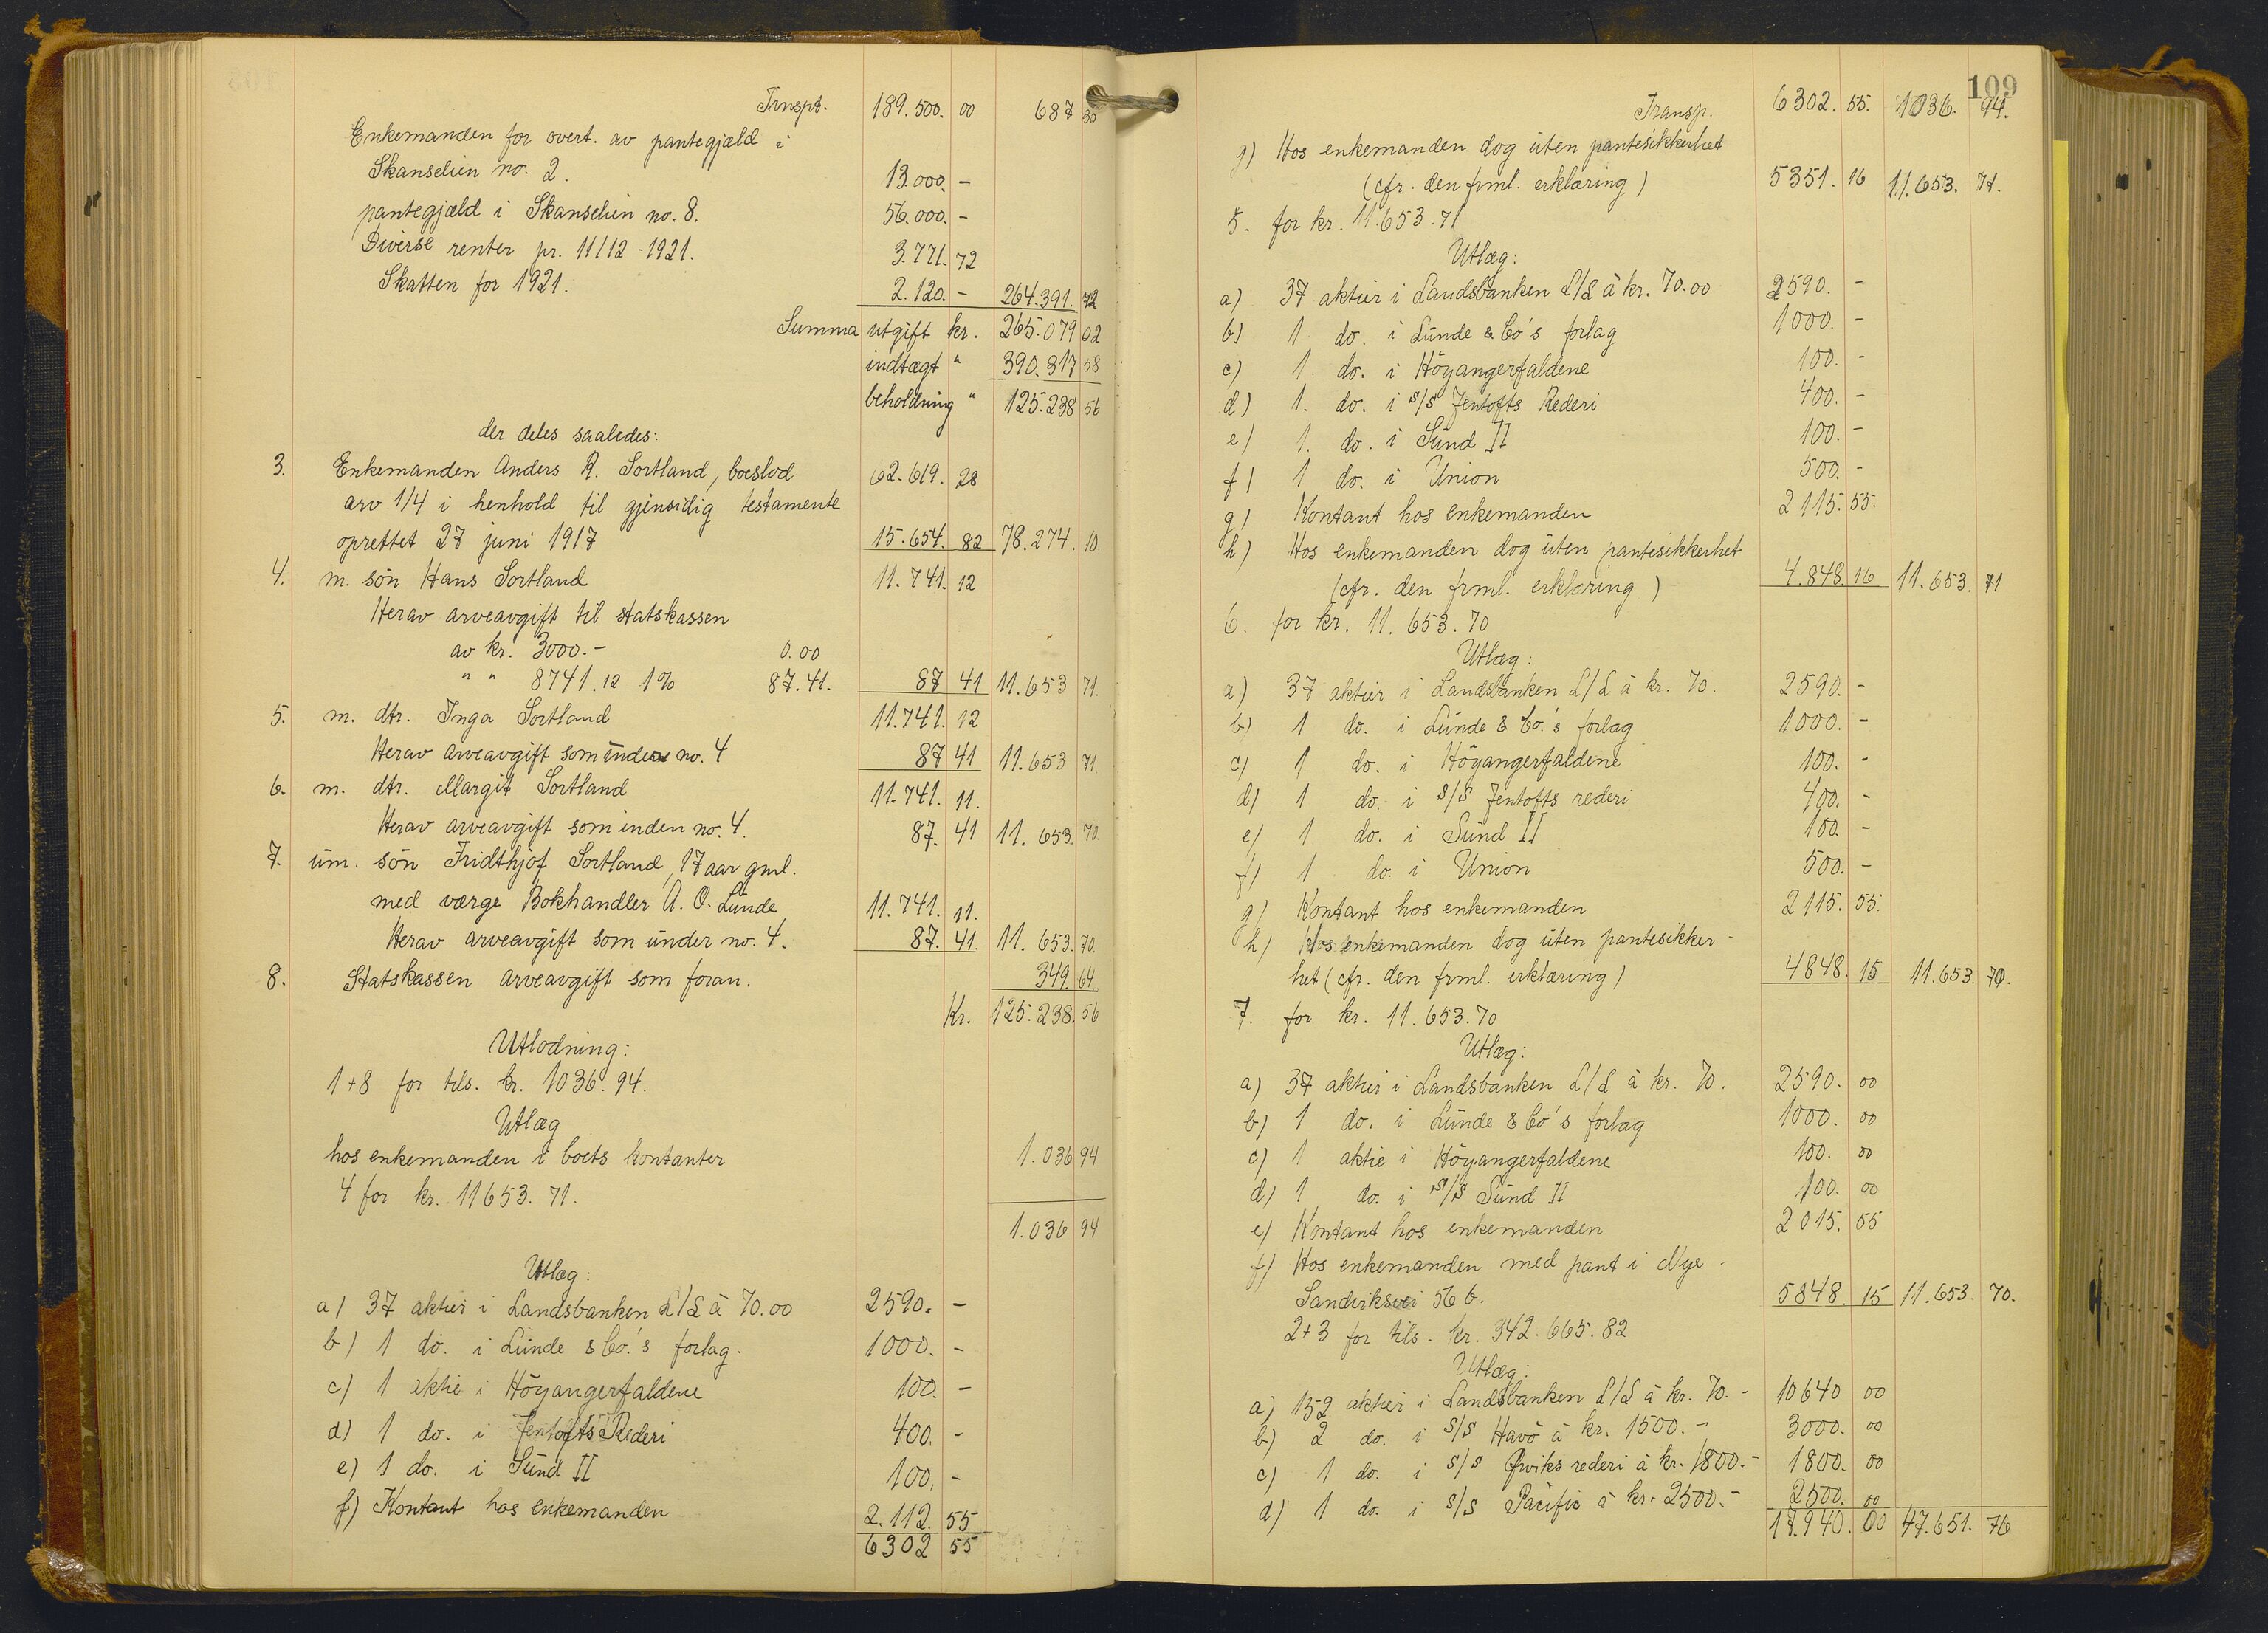 Trnspt. 189.500. 00 687 30
Enkemanden for overt. av pantegjæld i
Skanselien no. 2. 13.000. -
pantegjæld i Skanselien no. 8. 56.000. -
Diverse renter pr. 11/12 - 1921. 3.771. 72
Skatten for 1921. 2.120. - 264.391. 72
Summa utgift kr. 265.079 02
indtægt " 390.317 58
beholdning " 125.238 56
der deles saaledes:
3. Enkemanden Anders R. Sortland, boeslod 62.619. 28
arv 1/4 i henhold til gjensidig testamente
oprettet 27 juni 1917 15.654. 82 78.274. 10
4. m. sön Hans Sortland 11.741. 12
Herav arveavgift til statskassen
av kr. 3000.- 0.00
" " 8741.12 1% 87.41. 87 41 11.653 71.
5. m. dtr. Inga Sortland 11.741. 12
Herav arveavgift som under no. 4 87 41 11.653 71
6. m. dtr. Margit Sortland 11.741. 11.
Herav arveavgift som inden no. 4. 87. 41 11.653. 70.
7. um. sön Fridthjof Sortland, 17 aar gml.
med værge Bokhandler A. O. Lunde 11.741. 11.
Herav arveavgift som under no. 4. 87. 41. 11.653. 70
8. Statskassen arveavgift som foran. 349. 64
Kr. 125.238. 56
Utlodning:
1+8 for tils. kr. 1036.94.
Utlæg
hos enkemanden i boets kontanter 1.036 94
4 for kr. 11653.71.
1.036 94
Utlæg:
a) 37 aktier i Landsbanken L/L à 70.00 2590. -
b) 1 do. i Lunde & Co.'s forlag. 1000. -
c) 1 aktie i Höyangerfaldene 100. -
d) 1 do. i Jentofts Rederi 400. -
e) 1 do. i Sund II 100. -
f) Kontant hos enkemanden 2.112. 55
6302 55
109
Transp. 6302. 55. 1036. 94.
g) Hos enkemanden dog uten pantesikkerhet
(cfr. den frml. erklæring) 5351. 16 11.653. 71.
5. for kr. 11.653.71
Utlæg:
a) 37 aktier i Landsbanken L/L à kr. 70.00 2590. -
b) 1 do. i Lunde & Co's forlag 1000. -
c) 1 do. i Höyangerfaldene 100. -
d) 1. do. i S/S Jentofts Rederi 400. -
e) 1. do. i Sund II 100. -
f) 1 do. i Union 500. -
g) Kontant hos enkemanden 2115. 55.
h) Hos enkemanden dog uten pantesikkerhet
(cfr. den frml. erklæring) 4.848 16 11.653. 71
6. for kr. 11.653.70
Utlæg:
a) 37 aktier i Landsbanken L/L à kr. 70. 2590. -
b) 1 do. i Lunde & Co.'s forlag 1000. -
c) 1 do. i Höyangerfaldene 100. -
d) 1 do. i S/S Jentofts rederi 400. -
e) 1 do. i Sund II 100. -
f) 1 do. i Union 500. -
g) Kontant hos enkemanden 2115. 55.
h) Hos enkemanden dog uten pantesikker-
het (cfr. den frml. erklæring) 4848. 15 11.653. 70.
7. for kr. 11.653.70
Utlæg:
a) 37 aktier i Landsbanken L/L à kr. 70. 2590. 00
b) 1 do. i Lunde & Co's forlag 1000. 00
c) 1 aktie i Höyangerfaldene 100. 00
d) 1 do. i S/S Sund II 100. 00
e) Kontant hos enkemanden 2015. 55
f) Hos enkemanden med pant i Nye
Sandviksvei 56 b. 5848. 15 11.653. 70.
2+3 for tils. kr. 342.665.82
Utlæg:
a) 152 aktier i Landsbanken L/L à kr. 70.- 10640 00
b) 2 do. i S/S Havö à kr. 1500.- 3000. 00
c) 1 do. i S/S Qwiks rederi à kr. 1800.- 1800. 00
d) 1 do. i S/S Pacific à kr. 2500.- 2500. 00
17.940. 00 47.651. 76